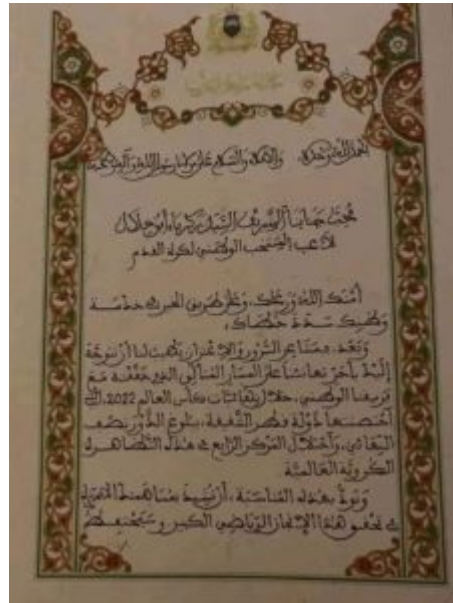 الحمد لله وحده والصلاة والسلام على مولانا رسول الله وآله وصحبه
محب جنابنا الشريف السيد زكرياء أبو خلال
لاعب المنتخب الوطني لكرة القدم
أمنك الله ورعاك، وعلى طريق الخير في خدمة
وطنك سدد خطاك،
وبعد، فمن بواعث السرور والاعتزاز لنا أن نتوجه
إليك بأحر تهانئنا على المسار المثالي الذي حققته مع
فريقنا الوطني، خلال نهائيات كأس العالم 2022، التي
احتضنتها دولة قطر الشقيقة، ببلوغ الدور نصف
النهائي، واحتلال المركز الرابع في هذه التظاهرة
الكروية العالمية.
ونود بهذه المناسبة، أن نشيد بمساهمتك
في تحقيق هذا الإنجاز الرياضي الكبير